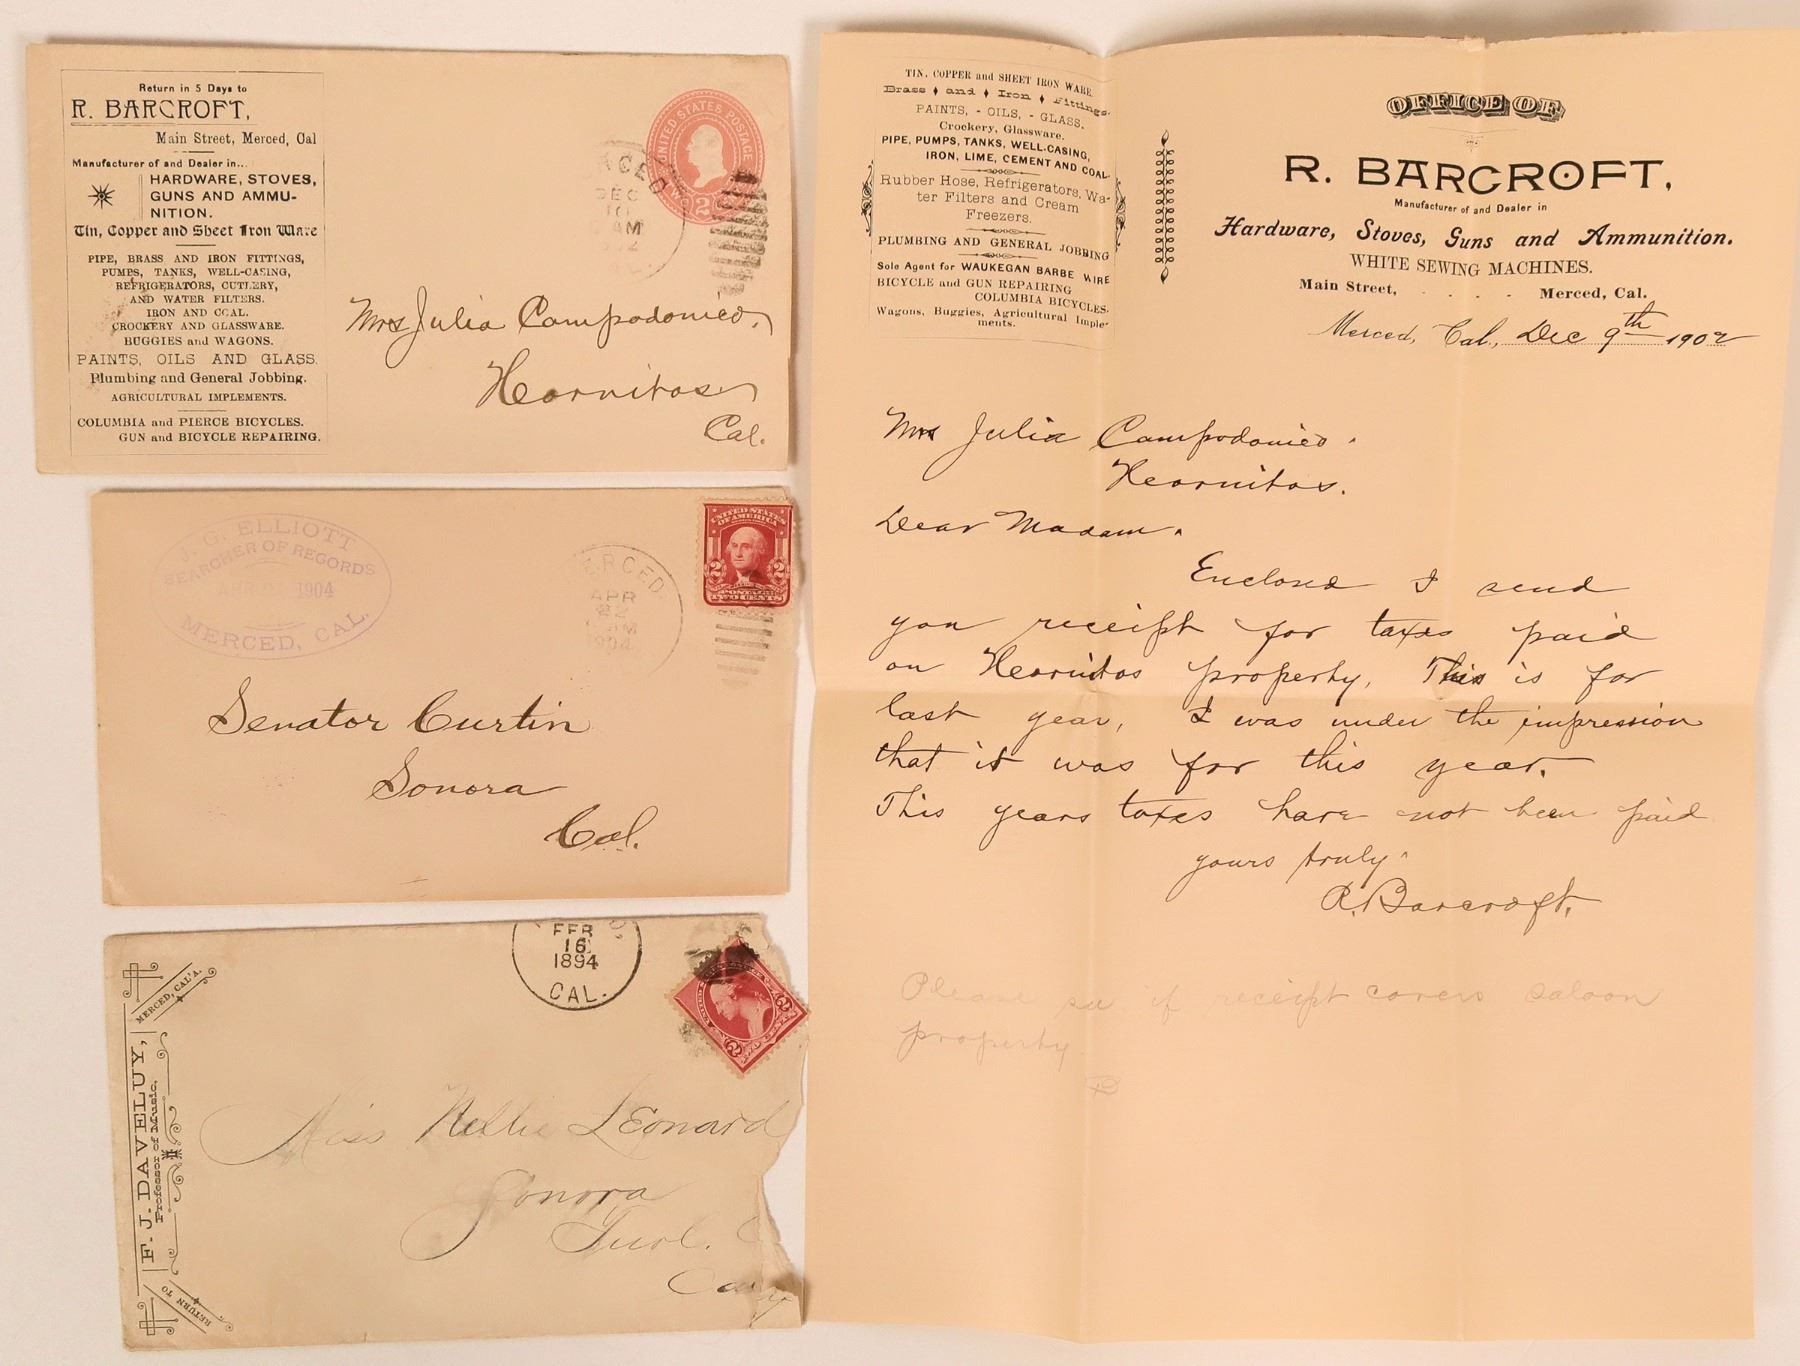 Return in 5 Days to
R. BARCROFT,
Main Street, Merced, Cal
Manufacturer of and Dealer in...
HARDWARE, STOVES,
GUNS AND AMMU-
NITION.
Tin, Copper and Sheet Iron Ware
PIPE, BRASS AND IRON FITTINGS,
PUMPS, TANKS, WELL-CASING,
REFRIGERATORS, CUTLERY,
AND WATER FILTERS.
IRON AND COAL.
CROCKERY AND GLASSWARE.
BUGGIES and WAGONS.
PAINTS, OILS AND GLASS.
Plumbing and General Jobbing.
AGRICULTURAL IMPLEMENTS.
COLUMBIA and PIERCE BICYCLES.
GUN and BICYCLE REPAIRING.
UNITED STATES POSTAGE
2
DEC
10
AM
Mrs Julia Campodonico,
Hornitos
Cal.
J. G. ELLIOTT
SEARCHER OF RECORDS
APR 21 1904
MERCED, CAL.
ERCED.
APR
22
1904
UNITED STATES
OF AMERICA
2 2
POSTAGE
TWO CENTS
Senator Curtin
Sonora
Cal.
RETURN TO
F. J. DAVELUY,
Professor of Music,
MERCED, CAL'A.
FEB
16
1894
CAL.
Miss Nellie Leonard
Sonora
Tuol. C
Cal
TIN, COPPER and SHEET IRON WARE.
Brass and Iron Fittings.
PAINTS, - OILS, - GLASS.
Crockery, Glassware.
PIPE, PUMPS, TANKS, WELL-CASING,
IRON, LIME, CEMENT AND COAL.
Rubber Hose, Refrigerators, Wa-
ter Filters and Cream
Freezers.
PLUMBING AND GENERAL JOBBING
Sole Agent for WAUKEGAN BARBE WIRE
BICYCLE and GUN REPAIRING
COLUMBIA BICYCLES.
Wagons, Buggies, Agricultural Imple-
ments.
OFFICE OF
R. BARCROFT,
Manufacturer of and Dealer in
Hardware, Stoves, Guns and Ammunition.
WHITE SEWING MACHINES.
Main Street, . . . . Merced, Cal.
Merced, Cal., Dec 9th 1902
Mrs Julia Campodonico.
Hornitos.
Dear Madam.
Enclosed I send
you receipt for taxes paid
on Hornitos property, This is for
last year, I was under the impression
that it was for this year.
This years taxes have not been paid
yours truly
R. Barcroft.
Please see if receipt covers saloon
property